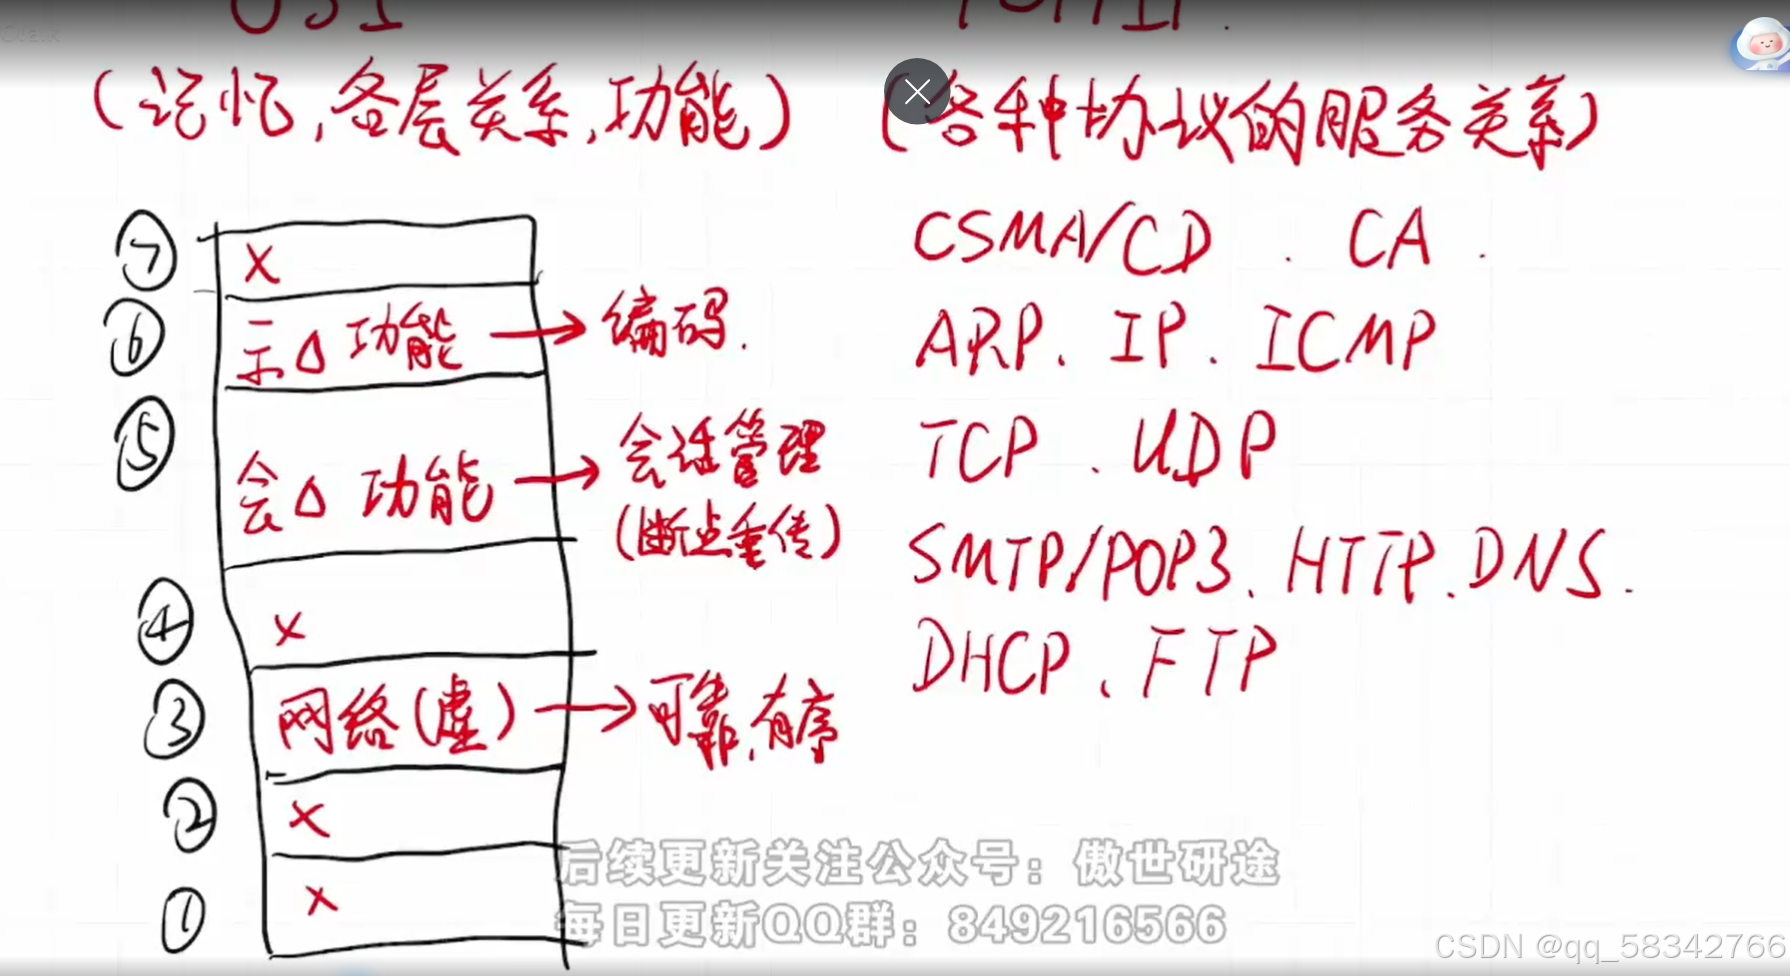 OSI TCP/IP.
(记忆,各层关系,功能) (各种协议的服务关系)
⑦ X
CSMA/CD . CA .
⑥ 示△ 功能 → 编码.
ARP、IP. ICMP
⑤ 会△ 功能 → 会话管理
(断点重传)
TCP . UDP
SMTP/POP3、HTTP.DNS.
④ X
DHCP、FTP
③ 网络(虚) → 可靠,有序
② X
① X
后续更新关注公众号：傲世研途
每日更新QQ群：849216566
CSDN @qq_58342766